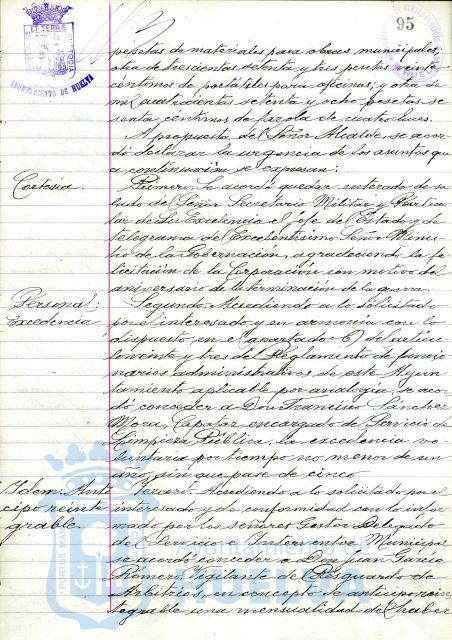 95
AYUNTAMIENTO DE HUELVA
pesetas de materiales para obras municipales;
otra de trescientas setenta y tres pesetas veinte
céntimos de portátiles para oficinas; y otra de
mil cuatrocientas setenta y ocho pesetas se-
senta céntimos de farola de cuatro luces.
A propuesta del Señor Alcalde, se acor-
dó declarar la urgencia de los asuntos que
a continuación se expresan:
Cortesía.
Primero. Se acordó quedar enterado de sa-
ludo del Señor Secretario Militar y Particu-
lar de Su Excelencia el Jefe del Estado y de
telegrama del Excelentísimo Señor Minis-
tro de la Gobernación, agradeciendo la fe-
licitación de la Corporación con motivo del
aniversario de la terminación de la guerra.
Personal;
Excedencia
Segundo. Accediendo a lo solicitado
por el interesado y en armonía con lo
dispuesto en el apartado b) del artícu-
lo veinte y tres del Reglamento de funcio-
narios administrativos de este Ayun-
tamiento, aplicable por analogía, se acor-
dó conceder a Don Francisco Sánchez
Mora, Capataz encargado del Servicio de
Limpieza Pública, la excedencia vo-
luntaria por tiempo no menor de un
año, sin que pase de cinco
Idem. Anti-
cipo reinte-
grable.
Tercero. Accediendo a lo solicitado por el
interesado y de conformidad con lo infor-
mado por los señores Gestor Delegado
del Servicio e Interventor Municipal
se acordó conceder a Don Juan García
Romero, Vigilante del Resguardo de
Arbitrios, en concepto de anticipo rein-
tegrable, una mensualidad de haber
Ayuntamiento de
HUELVA